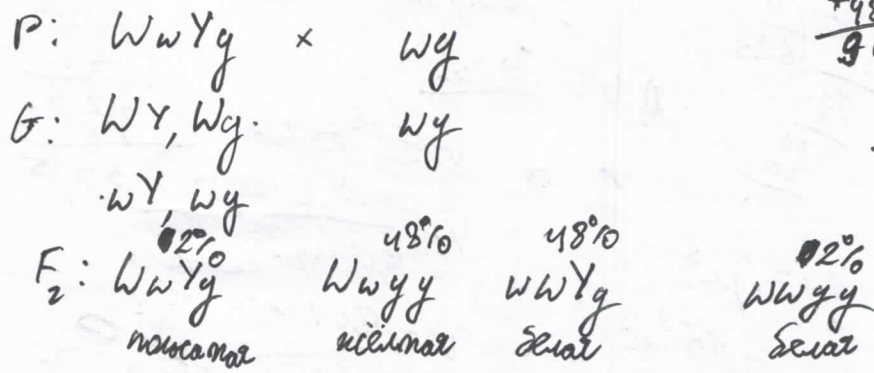 P: WwYy × wy
G: WY, Wy. wy
.wY, wy
2% 48% 48% 2%
F₂: WwYy Wwyy wwYy wwyy
полосатая жёлтая белая белая